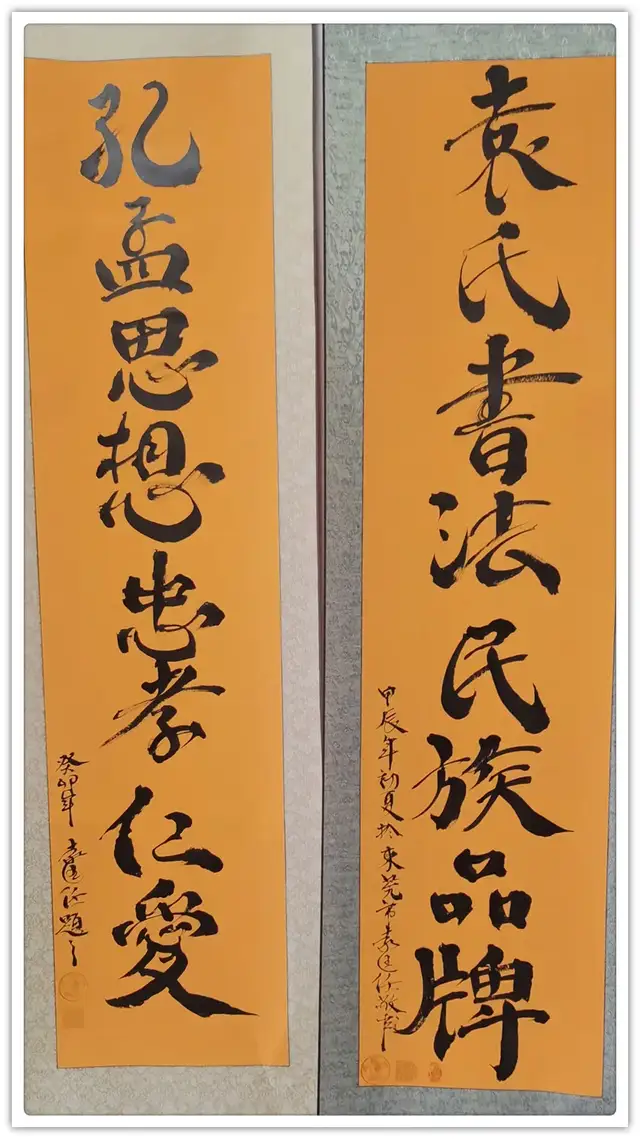 袁氏書法民族品牌
甲辰年初夏於東莞市袁
孔孟思想忠孝仁愛
癸卯年
題